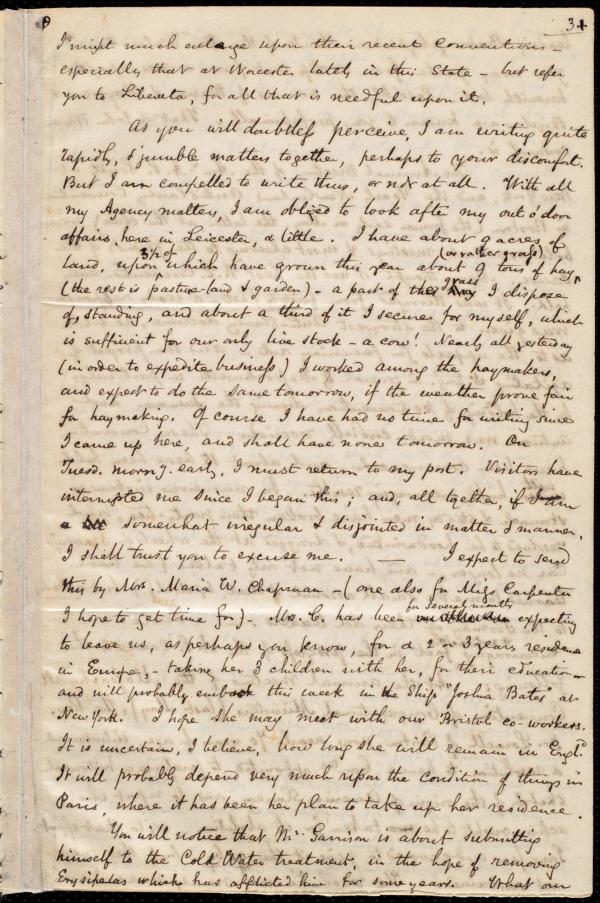 3
I might much enlarge upon their recent Conventions -
especially that at Worcester lately in this State - but refer
you to Liberator, for all that is needful upon it.
As you will doubtless perceive, I am writing quite
rapidly, & jumble matters together, perhaps to your discomfort.
But I am compelled to write thus, or not at all. With all
my Agency matters, I am obliged to look after my out o' door
affairs, here in Leicester, a little. I have about 9 acres of
land, upon 3 1/2 of which have grown this year about 9 tons of hay (or rather grass)
(the rest is pasture-land & garden) - a part of the grass I dispose
of, standing, and about a third of it I secure for myself, which
is sufficient for our only live stock - a cow! Nearly all yesterday
(in order to expedite business) I worked among the haymakers,
and expect to do the same tomorrow, if the weather prove fair
for haymaking. Of course I have had no time for writing since
I came up here, and shall have none tomorrow. On
Tuesd. morng. early, I must return to my post. Visitors have
interrupted me since I began this; and, all together, if I am
a somewhat irregular & disjointed in matter & manner,
I shall trust you to excuse me. — I expect to send
this by Mrs. Maria W. Chapman - (one also for Miss Carpenter
I hope to get time for) - Mrs. C. has been for several months expecting
to leave us, as perhaps you know, for a 2 or 3 years residence
in Europe, - taking her 3 children with her, for their education -
and will probably embark this week in the Ship "Joshua Bates" at
New York. I hope she may meet with our Bristol co-workers.
It is uncertain, I believe, how long she will remain in Engld.
It will probably depend very much upon the condition of things in
Paris, where it has been her plan to take up her residence.
You will notice that Mr. Garrison is about submitting
himself to the Cold Water treatment, in the hope of removing
Erysipelas which has afflicted him for some years. What our